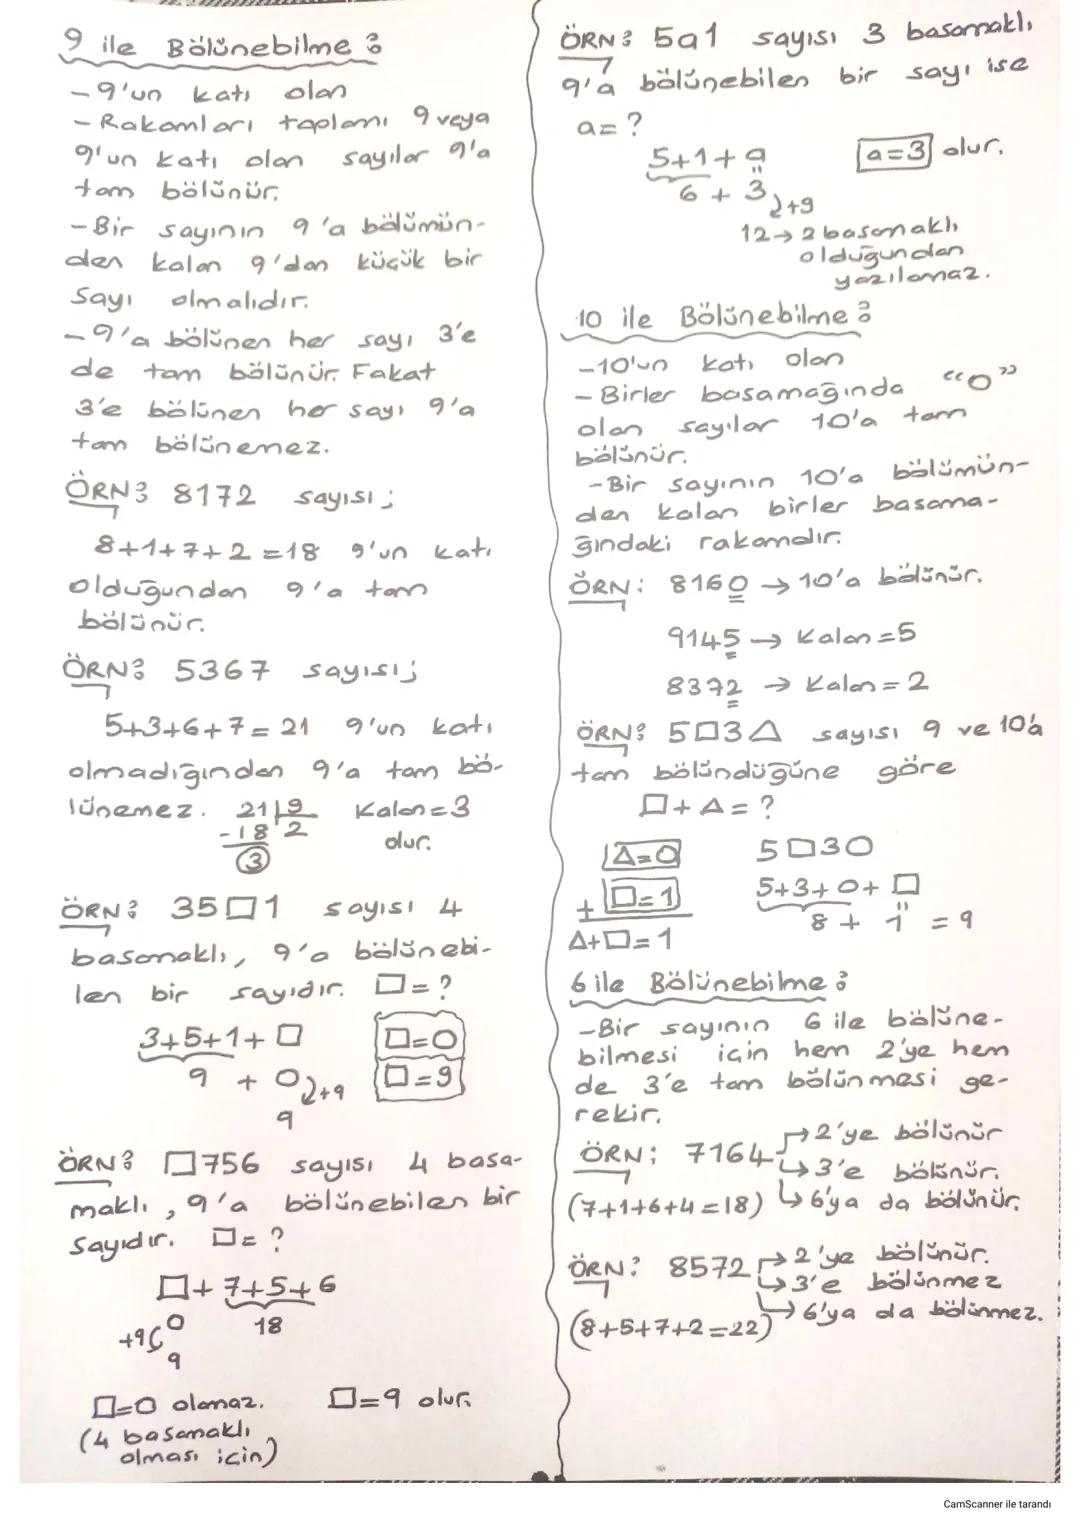 9 ile Bölünebilme :
- 9'un katı olan
- Rakamları toplamı 9 veya
9'un katı olan sayılar 9'a
tam bölünür.
- Bir sayının 9'a bölümün-
den kalan 9'dan küçük bir
sayı olmalıdır.
- 9'a bölünen her sayı 3'e
de tam bölünür. Fakat
3'e bölünen her sayı 9'a
tam bölünemez.
ÖRN: 8172 sayısı ;
8+1+7+2=18 9'un katı
olduğundan 9'a tam
bölünür.
ÖRN: 5367 sayısı ;
5+3+6+7=21 9'un katı
olmadığından 9'a tam bö-
lünemez. 21 | 9 Kalan=3
-18 2 olur.
3
ÖRN: 35□1 sayısı 4
basamaklı, 9'a bölünebi-
len bir sayıdır. □=?
3+5+1+□ □=0
9 + 0 ↓+9 □=9
9
ÖRN: □756 sayısı 4 basa-
maklı, 9'a bölünebilen bir
sayıdır. □=?
□+7+5+6
+9 0 18
9
□=0 olamaz. □=9 olur.
(4 basamaklı
olması için)
ÖRN: 5a1 sayısı 3 basamaklı
9'a bölünebilen bir sayı ise
a=?
5+1+a a=3 olur.
6 + 3 ↓+9
12→2 basamaklı
olduğundan
yazılamaz.
10 ile Bölünebilme :
- 10'un katı olan
- Birler basamağında "0"
olan sayılar 10'a tam
bölünür.
- Bir sayının 10'a bölümün-
den kalan birler basama-
ğındaki rakamdır.
ÖRN: 8160 → 10'a bölünür.
9145 → Kalan=5
8392 → Kalan=2
ÖRN: 5□3△ sayısı 9 ve 10'a
tam bölündüğüne göre
□+△=?
△=0 5□30
+ □=1 5+3+0+□
△+□=1 8 + 1 = 9
6 ile Bölünebilme :
- Bir sayının 6 ile bölüne-
bilmesi için hem 2'ye hem
de 3'e tam bölünmesi ge-
rekir.
ÖRN: 7164 → 2'ye bölünür
→ 3'e bölünür.
(7+1+6+4=18) → 6'ya da bölünür.
ÖRN: 8572 → 2'ye bölünür.
→ 3'e bölünmez
(8+5+7+2=22) → 6'ya da bölünmez.
CamScanner ile tarandı